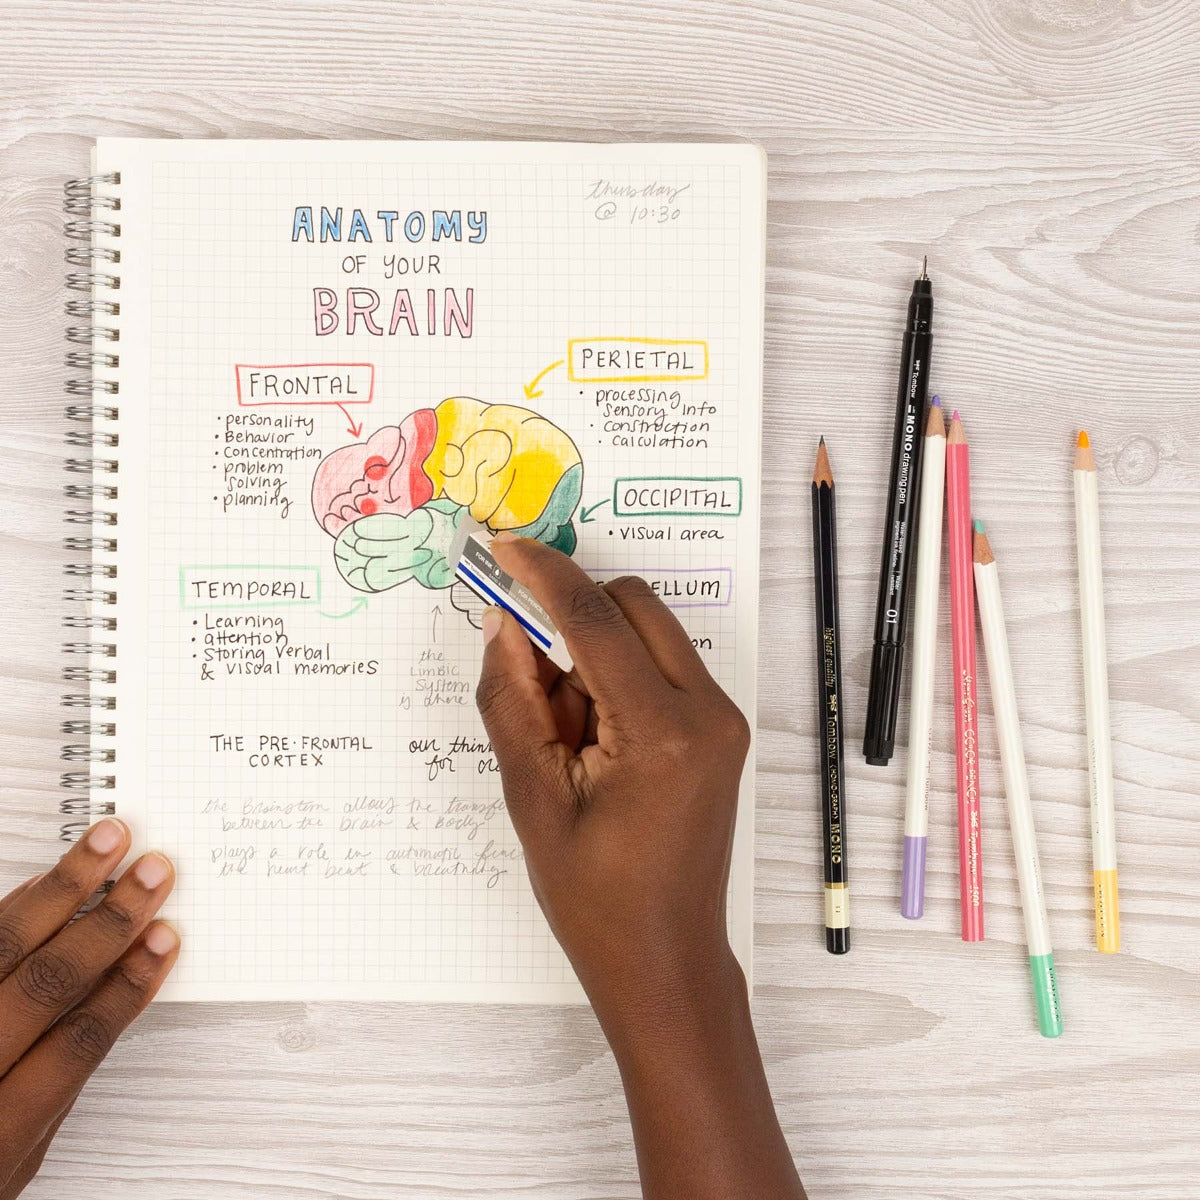 thursday
@ 10:30
ANATOMY
OF YOUR
BRAIN
FRONTAL
• personality
• Behavior
• concentration
• problem
solving
• planning
PERIETAL
• processing
sensory info
• construction
• calculation
OCCIPITAL
• visual area
TEMPORAL
• Learning
• attention
• Storing verbal
& visual memories
the
LIMBIC
System
is above
THE PRE-FRONTAL
CORTEX
our
for
the Brainstem allows the
between the brain & Body
plays a role in automatic
the heart beat & breathing
FOR INK
FOR PENCIL
Tombow MONO drawing pen
01
highest quality Tombow HOMO-GRAPH MONO
Tombow 1500